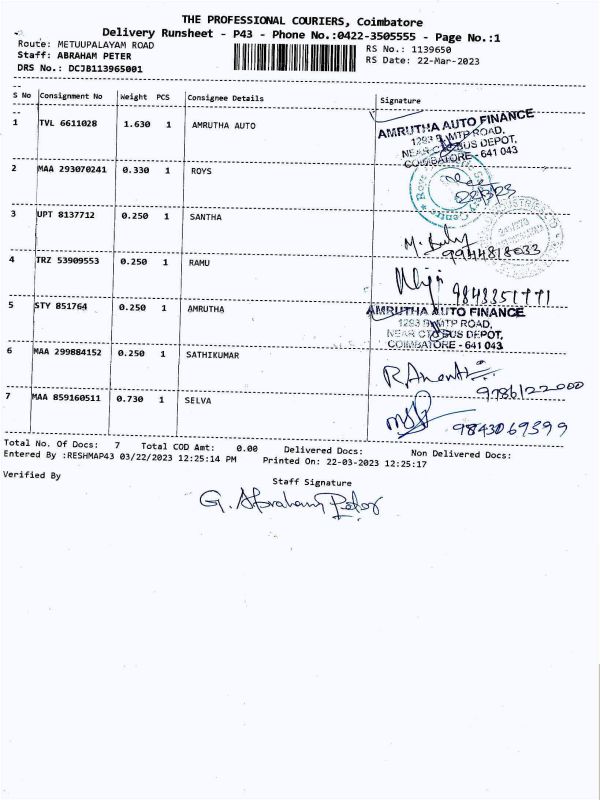 THE PROFESSIONAL COURIERS, Coimbatore
Delivery Runsheet - P43 - Phone No.:0422-3505555 - Page No.:1
Route: METUUPALAYAM ROAD
Staff: ABRAHAM PETER
DRS No.: DCJB113965001
RS No.: 1139650
RS Date: 22-Mar-2023
S No Consignment No Weight PCS Consignee Details Signature
1 TVL 6611028 1.630 1 AMRUTHA AUTO
AMRUTHA AUTO FINANCE
1293 MTP ROAD,
NEAR CTC BUS DEPOT,
COIMBATORE - 641 043
2 MAA 293070241 0.330 1 ROYS
3 UPT 8137712 0.250 1 SANTHA
9944818033
4 TRZ 53909553 0.250 1 RAMU
9843351771
5 STY 851764 0.250 1 AMRUTHA
AMRUTHA AUTO FINANCE
1293 MTP ROAD,
NEAR CTC BUS DEPOT,
COIMBATORE - 641 043
6 MAA 299884152 0.250 1 SATHIKUMAR
9786122000
7 MAA 859160511 0.730 1 SELVA
9843069399
Total No. Of Docs: 7 Total COD Amt: 0.00 Delivered Docs: Non Delivered Docs:
Entered By :RESHMAP43 03/22/2023 12:25:14 PM Printed On: 22-03-2023 12:25:17
Verified By
Staff Signature
G. Abraham Peter